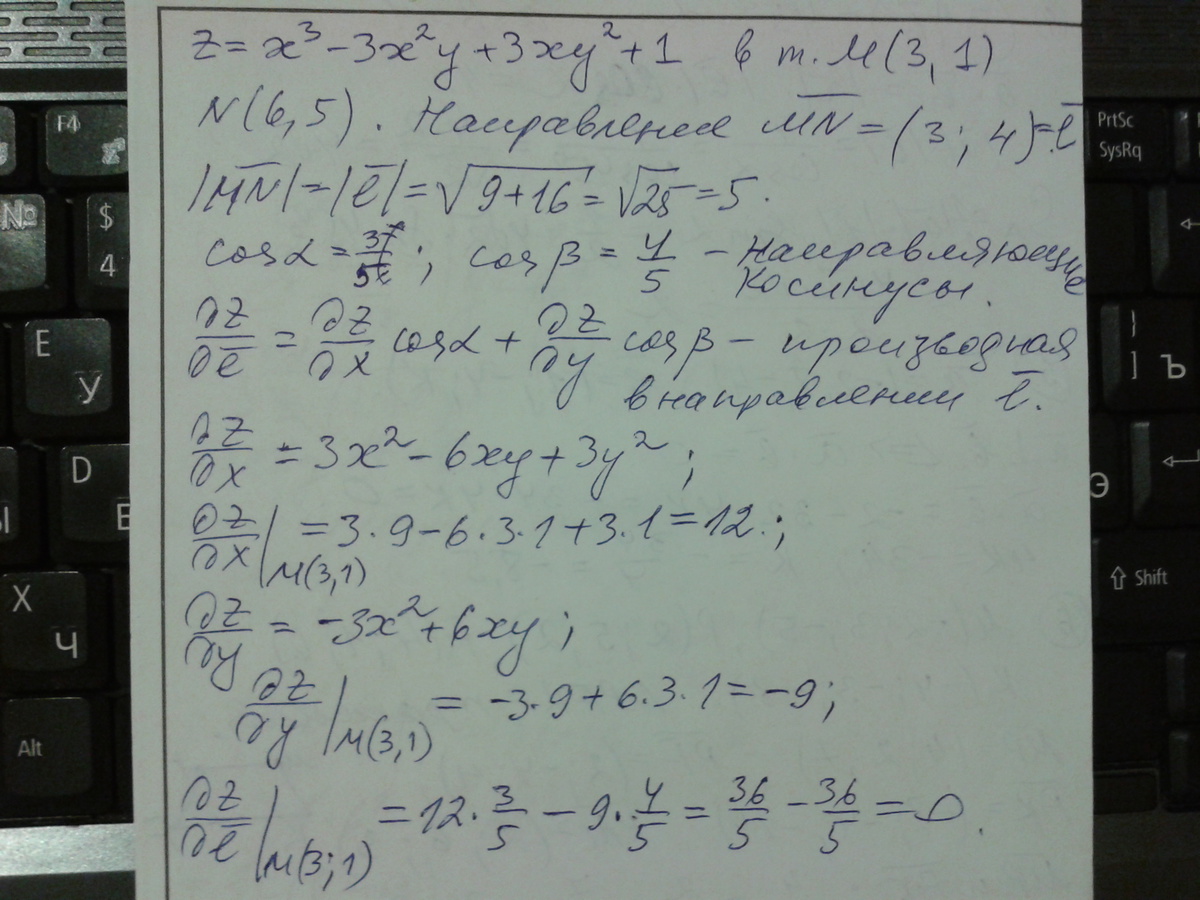 z = x³ - 3x²y + 3xy² + 1 в т. M(3, 1)
N(6, 5). Направление M̅N̅ = (3; 4) = l̅
|M̅N̅| = |l̅| = √(9+16) = √25 = 5.
cosα = 3/5; cosβ = 4/5 – направляющие
косинусы.
∂z/∂l̅ = ∂z/∂x cosα + ∂z/∂y cosβ – производная
в направлении l̅.
∂z/∂x = 3x² - 6xy + 3y²;
∂z/∂x |M(3,1) = 3·9 - 6·3·1 + 3·1 = 12.;
∂z/∂y = -3x² + 6xy;
∂z/∂y |M(3,1) = -3·9 + 6·3·1 = -9;
∂z/∂l̅ |M(3;1) = 12·3/5 - 9·4/5 = 36/5 - 36/5 = 0.
F4
PrtSc
SysRq
№
$
4
E
У
}
]
Ъ
D
Э
X
Ч
⇧ Shift
Alt